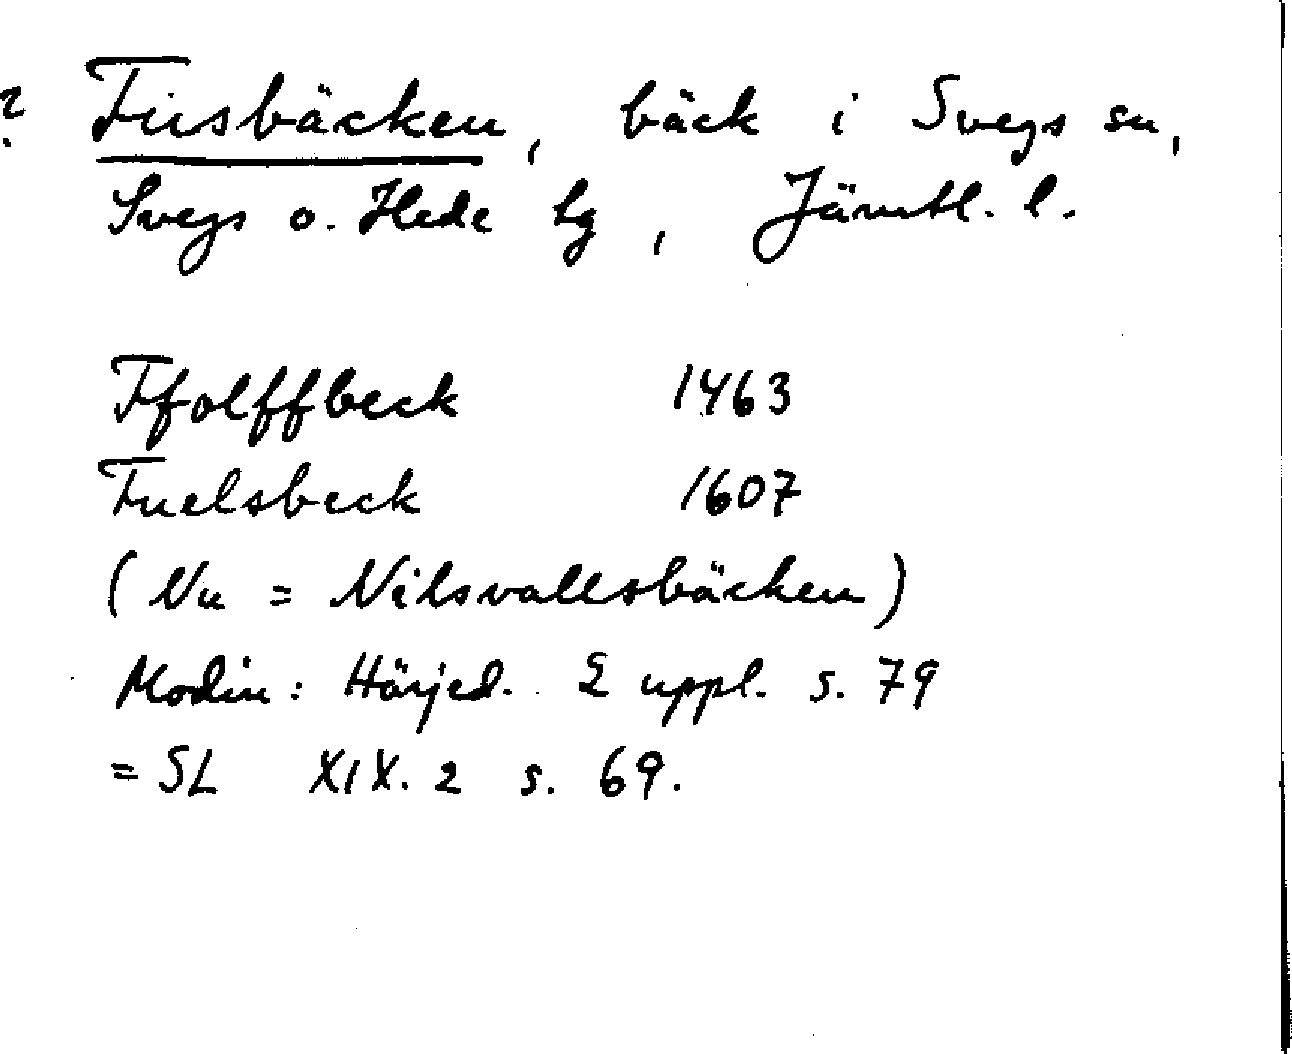 ? Tiisbäcken, bäck i Svegs sn,
Svegs o. Hede tg, Jämtl. l.
Tfolffbeck 1463
Tuelsbeck 1607
(Nu = Nilsvallsbäcken)
Modin: Härjed. 2 uppl. s. 79
= SL XIX. 2 s. 69.